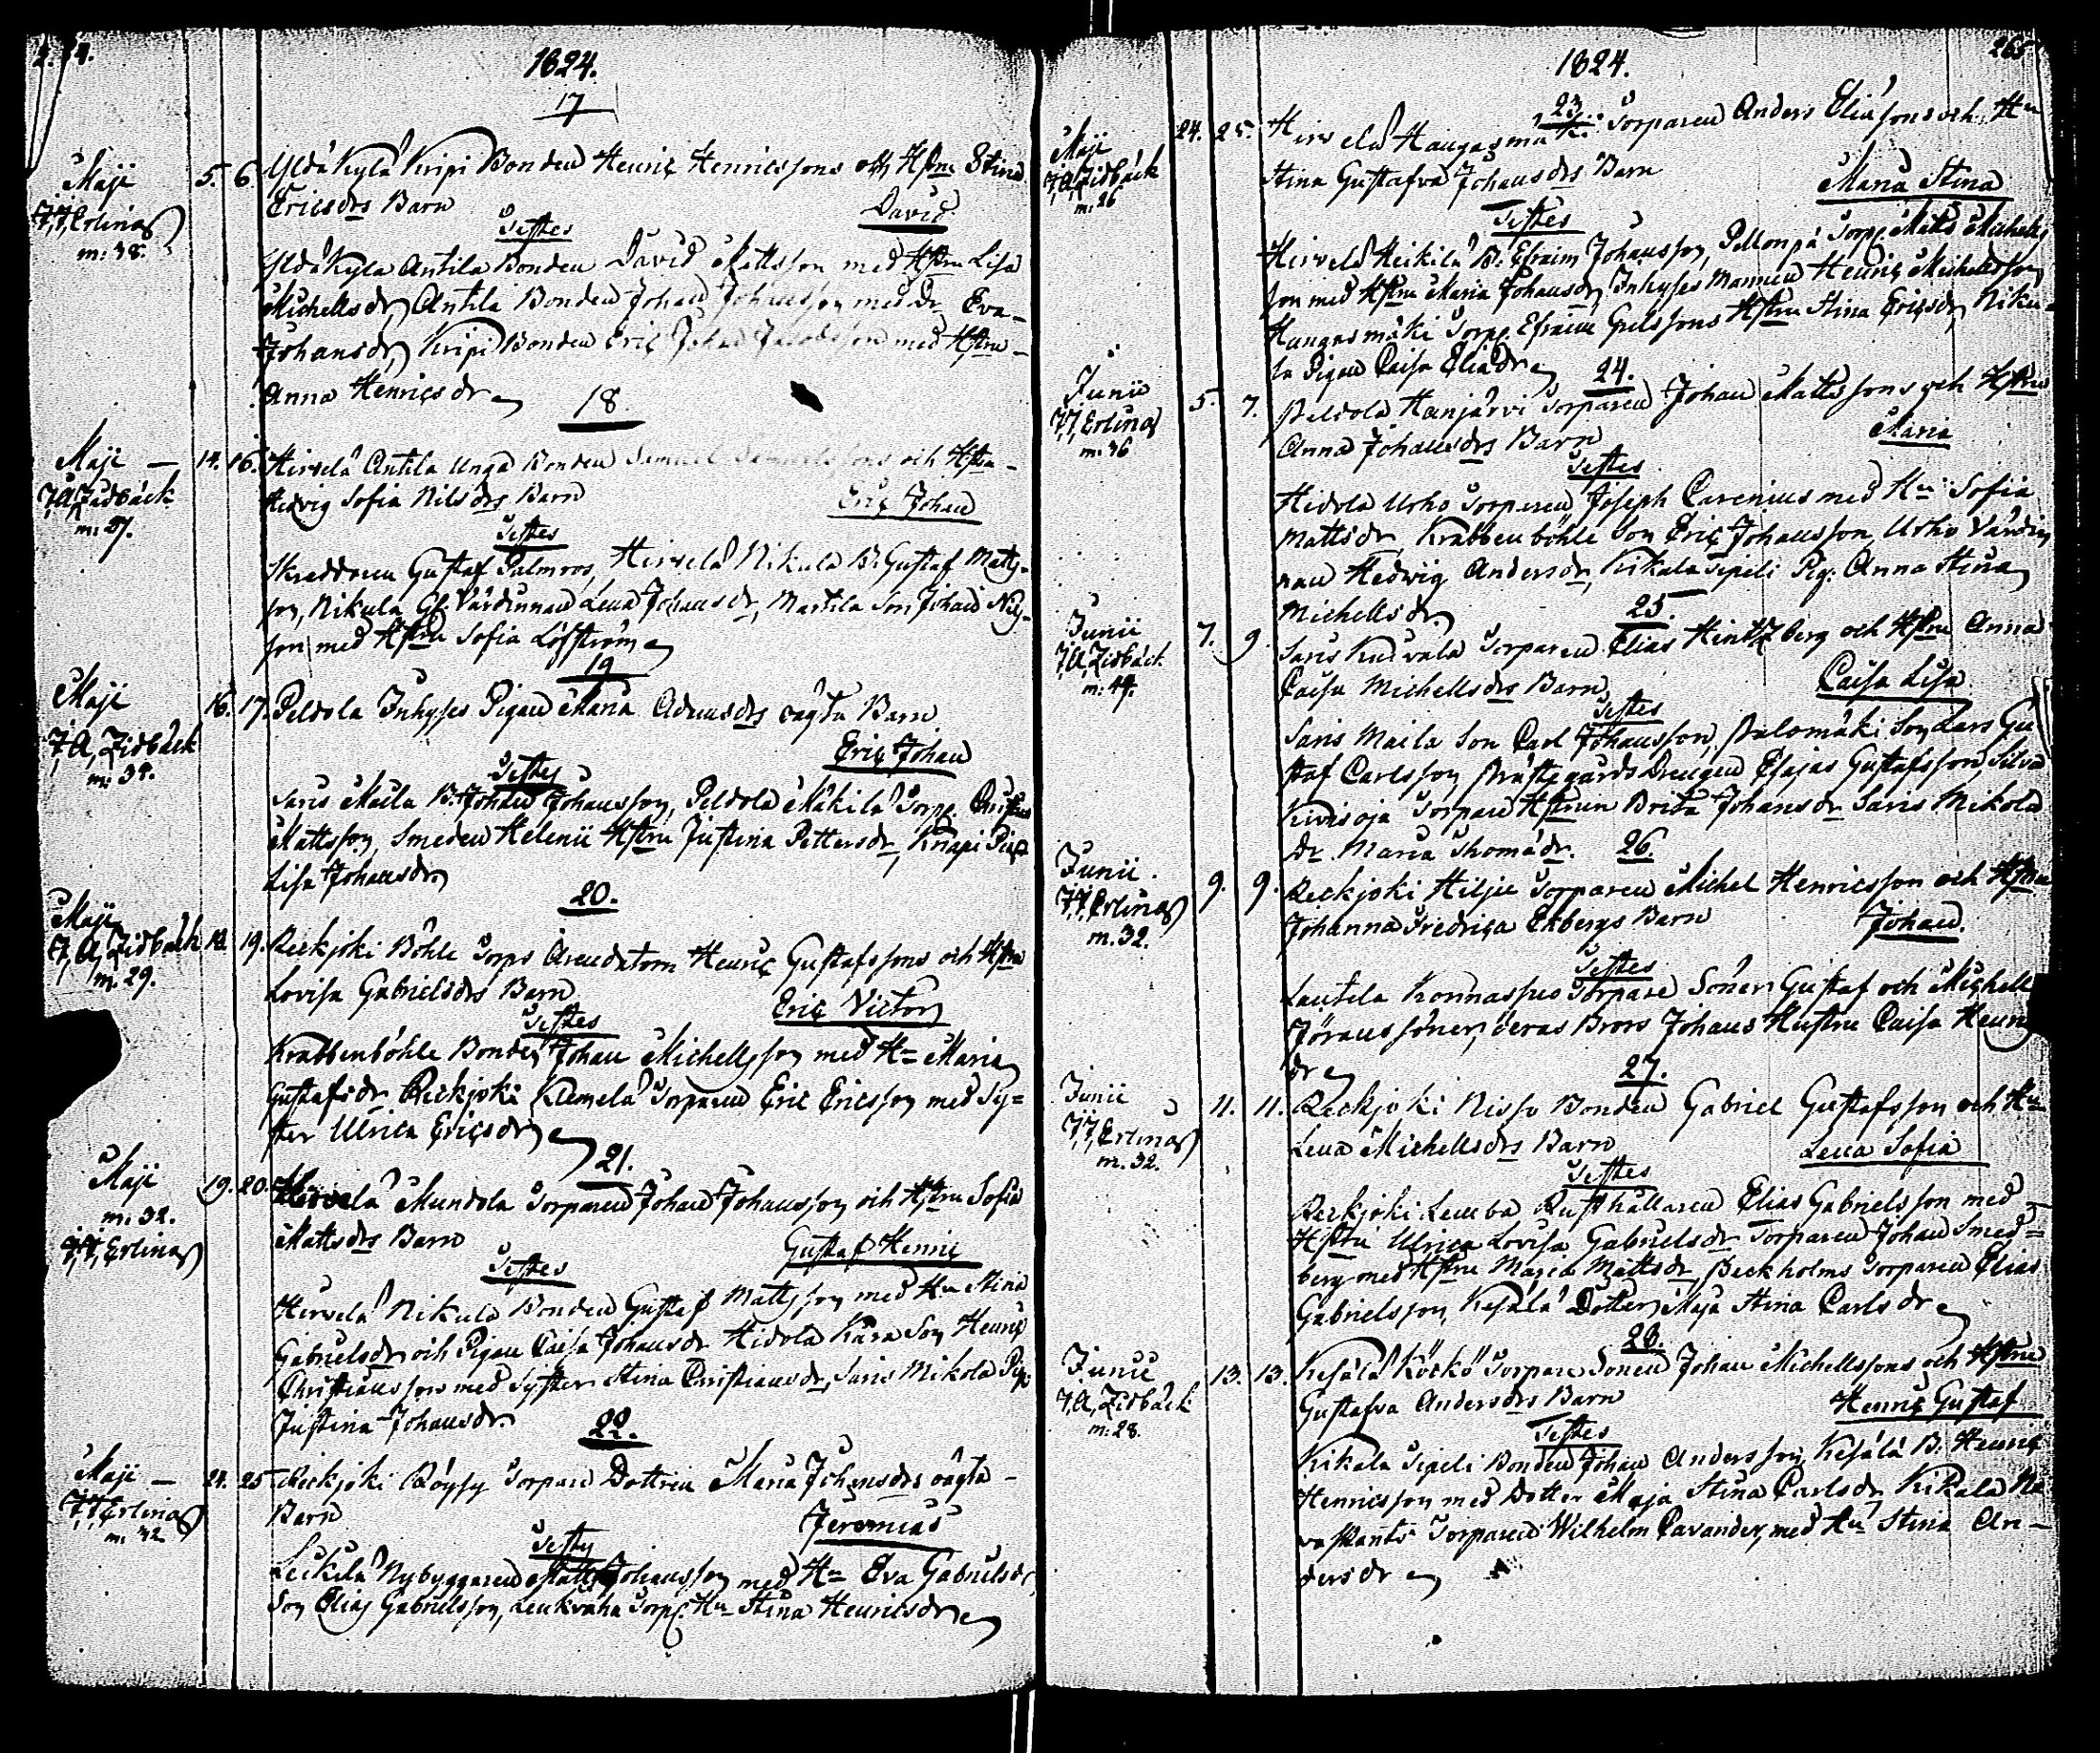 1824.
17
Maji 5. 6. Yldäkylä Kripi Bonden Henriç Henricssons och Hstru Stina
J,J,Erlings Ericsdrs Barn David
m: 38. Testes
Yldäkyla Antila Bonden David Mattsson med Hstru Lisa
Michellsdr, Antila Bonden Johan Johansson med Dr Eva
Johansdr, Kripi Bonden Eriç Johan Jacobsson med Hstru
Anna Henriçsdr
18
Maji 14. 16. Hirvelä Antila Unga Bonden Samuel och Hstru
J,A,Zidbäck Hedvig Sofia Nilsdrs Barn Eriç Johan
m: 27. Testes
Skräddaren Gustaf Palmros, Hirvelä Nikula B. Gustaf Matts-
son, Nikula Gl. Värdinnan Lena Johansdr, Martila Son Johan
son med Hstru Sofia Löfström
19
Maji 16. 17. Peldola Inhyses Pigan Maria Adamsdrs oägta Barn
J,A,Zidbäck Eriç Johan
m: 39. Testes
Saris Maila B. Johan Johansson, Peldola Mäkilä Torp.
Mattsson, Smeden Helenii Hstru Justina Pettersdr, Knapi Pig.
Lisa Johansdr
20.
Maji
J,A,Zidbäck 18. 19. Reckjoki Böhle Torps Arendatorn Henriç Gustafssons och Hstru
m. 29. Lovisa Gabrielsdrs Barn
Testes Eriç Victor
Krabbenböhle Bonden Johan Michellsson med H= Maria
Gustafsdr Reckjoki Klemelä Torparen Eric Ericsson med Sy=
ster Ulrica Eriçsdr
21.
Maji 19. 20. Hirvelä Mundola Torparen Johan Johansson och Hstru Sofia
m: 32. Mattsdrs Barn
J,J,Erlings Testes Gustaf Henriç
Hirvelä Nikula Bonden Gustaf Mattsson med Hu Stina
Gabrielsdr och Pigan Caisa Johansdr Hidola Kära Son Henriç
Christiansson med Syster Stina Christiansdr, Saris Mikola Pig.
Justina Johansdr.
22.
Maji 24. 25 Reckjoki Röysy Torpare Dottren Maria Johansdrs oägta
J,J,Erlings Barn Jeremias
m. 32 Testes
Leikilä Nybyggaren Matts Johansson med H= Eva Gabrielsdr
Son Elias Gabrielsson, Leukvaha Torp. Hu Stina Henricsdr
1824. 265
23.
Maji 24. 25. Hirvelä Hangasmäki Torparen Anders Eliässons och Hu
J,A,Zidbäck Stina Gustafva Johansdrs Barn Maria Stina
m: 26 Testes
Hirvelä Heikilä B. Efraim Johansson, Pellonpä Torp. Matts Michells
son med Hstru Maria Johansdr, Inhyses Mannen Henriç Michellsson
Hangasmäki Torp. Efraim Grelssons Hstru Stina Eriçsdr, Niku-
la Pigan Caisa Eliädr
24.
Junii 5. 7. Peldola Hanjärvi Torparen Johan Mattssons och Hstru
J,J,Erlings Anna Johansdrs Barn Maria
m: 36 Testes
Hidola Urho Torparen Joseph Carenius med Hu Sofia
Mattsdr, Krabbenböhle Son Eriç Johansson, Urho Värdin
nan Hedwig Andersdr, Kikala Sipeli Pig: Anna Stina
Michellsdr
25.
Junii 7. 9 Saris Knuvala Torparen Elias Hintzberg och Hstru Anna
J,A,Zidbäck Caisa Michellsdrs Barn Caisa Lisa
m: 44. Testes
Saris Maila Son Carl Johansson, Palomäki Son Lars Gu
staf Carlsson, Prästegårds Drengen Esajas Gustafsson, Silva
Kivioja Torpare Hstrun Brita Johansdr Saris Mikola
Dr Maria Thomädr.
26.
Junii. 9. 9. Reckjoki Hiljie Torparen Michel Henricsson och Hstru
J,J,Erlings Johanna Fredriça Ekbergs Barn Johan.
m. 32. Testes
Lautela Konnasuo Torpare Söner Gustaf och Michell
Jöranssöner, deras Brors Johans Hustru Caisa Henriç
dr
27.
Junii 11. 11. Reckjoki Nisso Bonden Gabriel Gustafsson och Hu
J,J,Erlings Lena Michellsdrs Barn Lena Sofia
m. 32. Testes
Reckjoki Lemba Rusthållaren Elias Gabrielsson med
Hstru Ulrica Lovisa Gabrielsdr Torparen Johan Smed=
berg med Hstru Maria Mattsdr, Beckholms Torparen Elias
Gabrielsson, Kesälä Dotter Maja Stina Carlsdr
28.
Junii 13. 13. Kesälä Köckö Torpare Sonen Johan Michellssons och Hstru
J,A,Zidbäck Gustafva Andersdrs Barn Henriç Gustaf
m: 28. Testes
Kikala Sipeli Bonden Johan Andersson, Kesälä B. Henriç
Henricsson med Dotter Maja Stina Carlsdr Kikala Ne
vaskants Torparen Wilhelm Cavander, med Hu Stina An-
dersdr